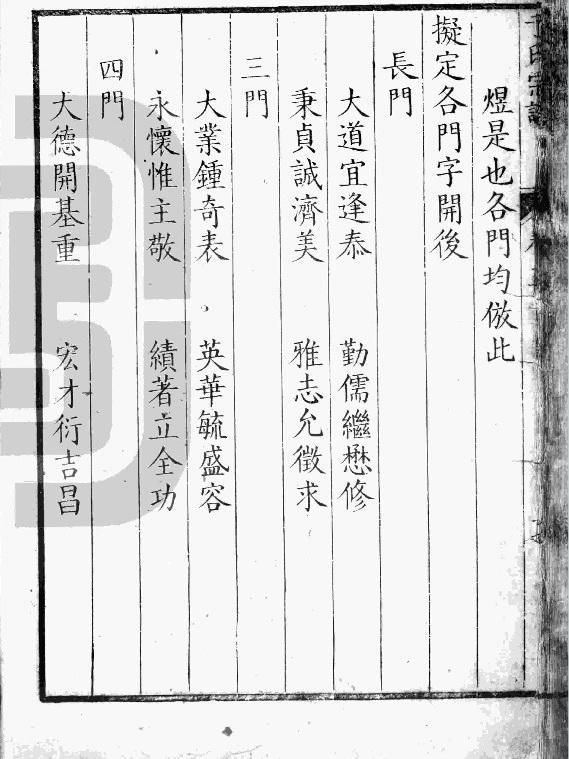 煜是也各門均倣此
擬定各門字開後
長門
大道宜逢泰　勤儒繼懋修
秉貞誠濟美　雅志允徵求
三門
大業鍾奇表　英華毓盛容
永懷惟主敬　績著立全功
四門
大德開基重　宏才衍吉昌